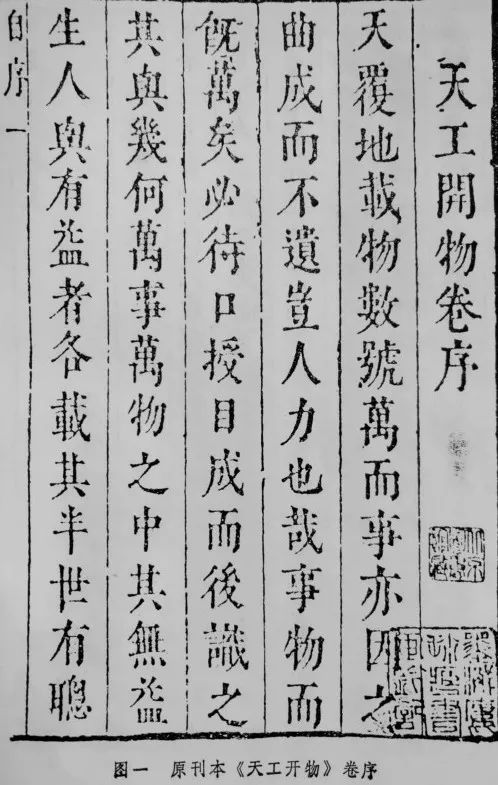 天工開物卷序
天覆地載物數號萬而事亦因之
曲成而不遺豈人力也哉事物而
旣萬矣必待口授目成而後識之
其與幾何萬事萬物之中其無益
生人與有益者各載其半世有聰
序一
图一 原刊本《天工开物》卷序